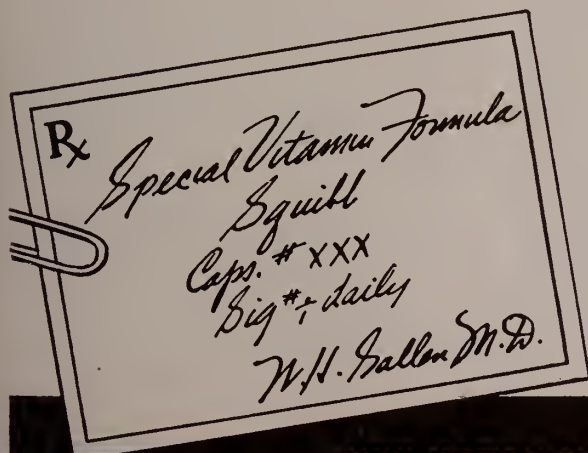 Rx
Special Vitamin Formula
Squibb
Caps. # XXX
Sig # i daily
W. H. M.D.